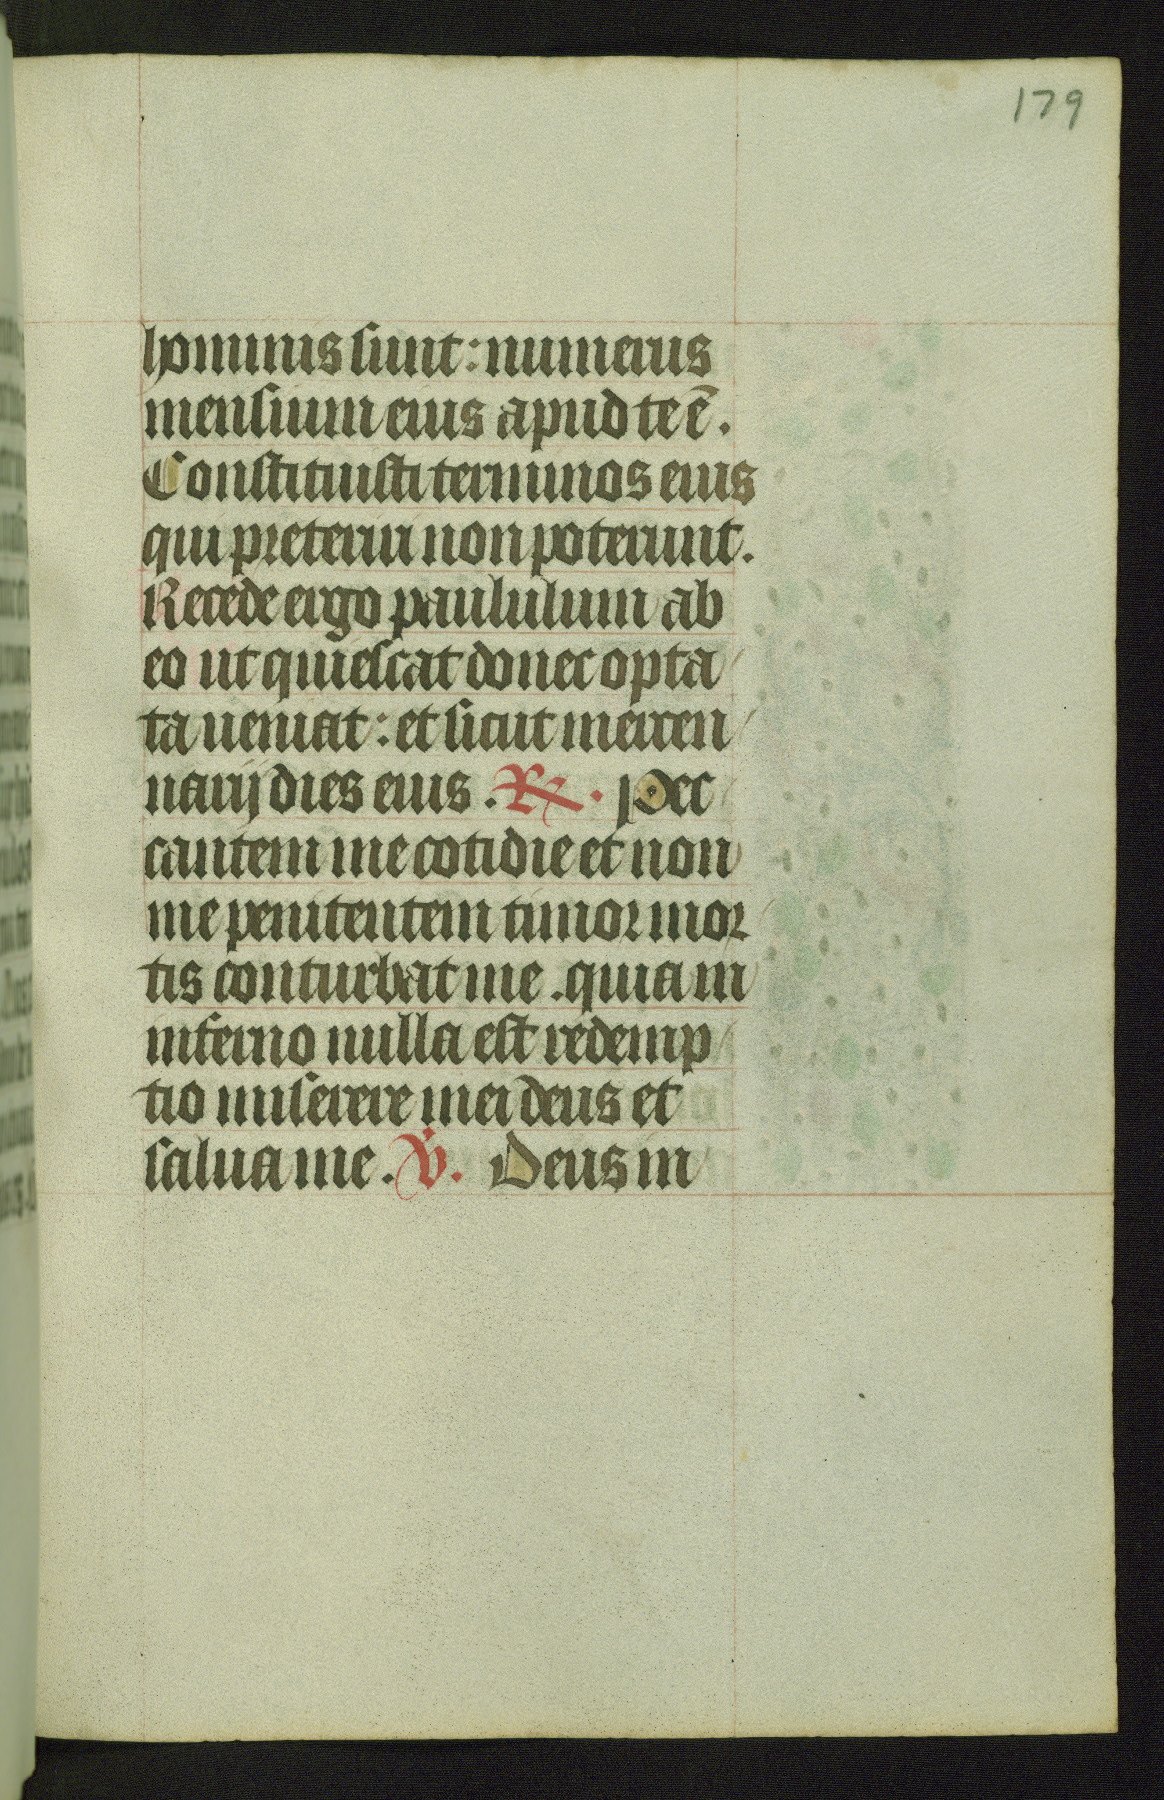 179
hominis sunt: numerus
mensium eius apud te ē.
Constituisti terminos eius
qui preteriri non poterunt.
Recede ergo paululum ab
eo ut quiescat donec opta
ta ueniat: et sicut mercen
narij dies eius. ℟. Pec
cantem me cotidie et non
me penitentem timor mor
tis conturbat me. quia in
inferno nulla est redemp
tio miserere mei deus et
salua me. ℣. Deus in